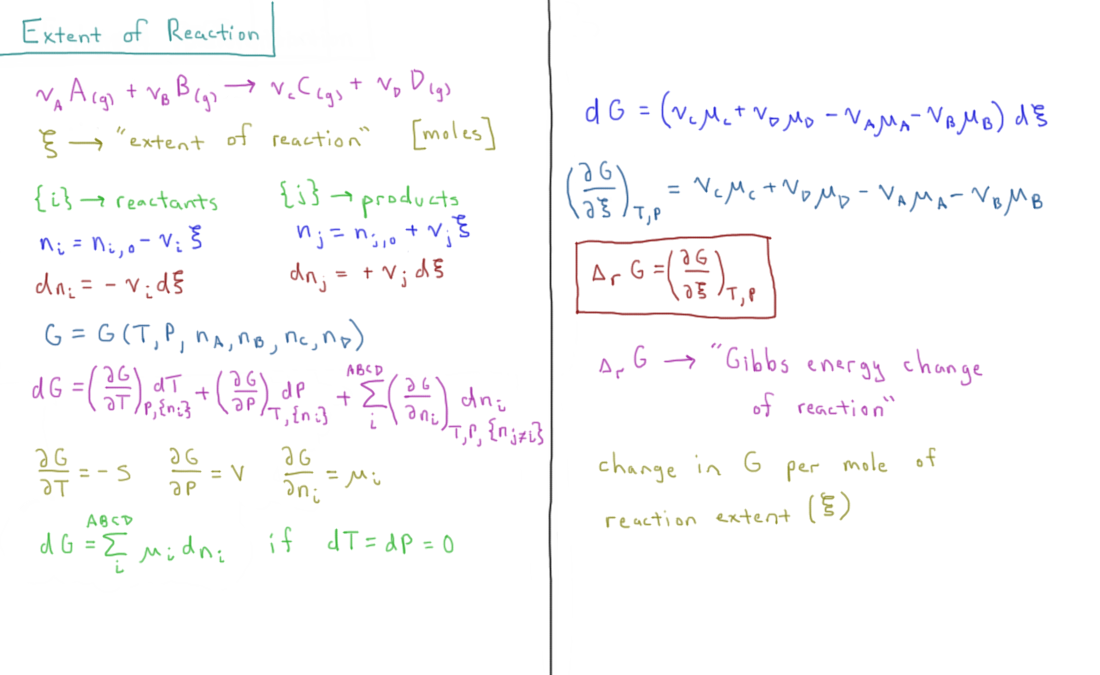 Extent of Reaction
ν_A A(g) + ν_B B(g) → ν_C C(g) + ν_D D(g)
ξ → "extent of reaction" [moles]
{i} → reactants {j} → products
n_i = n_i,0 - ν_i ξ n_j = n_j,0 + ν_j ξ
dn_i = - ν_i dξ dn_j = + ν_j dξ
G = G(T, P, n_A, n_B, n_C, n_D)
dG = (∂G/∂T)_P,{n_i} dT + (∂G/∂P)_T,{n_i} dP + Σ_i^ABCD (∂G/∂n_i)_T,P,{n_j≠i} dn_i
∂G/∂T = - S ∂G/∂P = V ∂G/∂n_i = μ_i
dG = Σ_i^ABCD μ_i dn_i if dT = dP = 0
dG = (ν_C μ_C + ν_D μ_D - ν_A μ_A - ν_B μ_B) dξ
(∂G/∂ξ)_T,P = ν_C μ_C + ν_D μ_D - ν_A μ_A - ν_B μ_B
Δ_r G = (∂G/∂ξ)_T,P
Δ_r G → "Gibbs energy change
of reaction"
change in G per mole of
reaction extent (ξ)